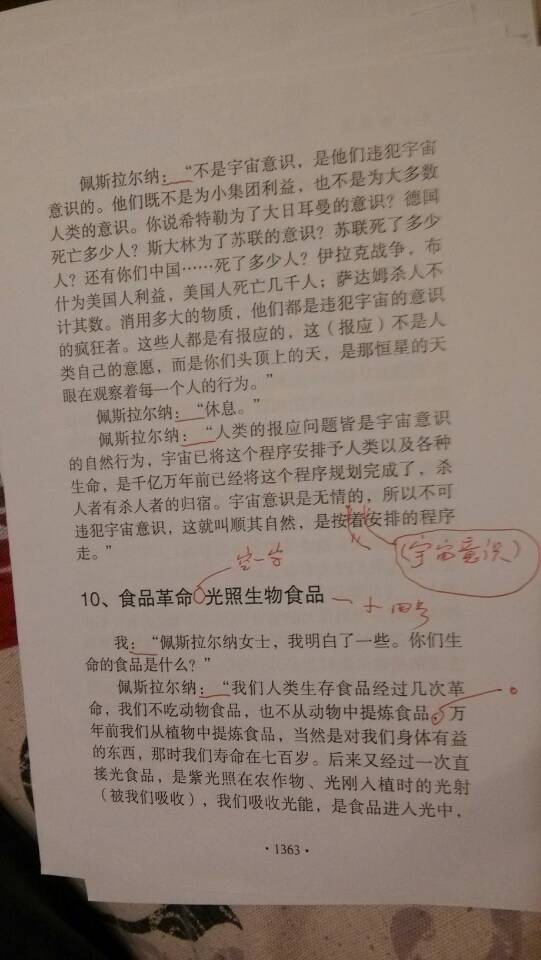 佩斯拉尔纳：“不是宇宙意识，是他们违犯宇宙
意识的。他们既不是为小集团利益，也不是为大多数
人类的意识。你说希特勒为了大日耳曼的意识？德国
死亡多少人？斯大林为了苏联的意识？苏联死了多少
人？还有你们中国……死了多少人？伊拉克战争，布
什为美国人利益，美国人死亡几千人；萨达姆杀人不
计其数。消用多大的物质，他们都是违犯宇宙的意识
的疯狂者。这些人都是有报应的，这（报应）不是人
类自己的意愿，而是你们头顶上的天，是那恒星的天
眼在观察着每一个人的行为。”
佩斯拉尔纳：“休息。”
佩斯拉尔纳：“人类的报应问题皆是宇宙意识
的自然行为，宇宙已将这个程序安排予人类以及各种
生命，是千亿万年前已经将这个程序规划完成了，杀
人者有杀人者的归宿。宇宙意识是无情的，所以不可
违犯宇宙意识，这就叫顺其自然，是按着安排的程序
走。”
（宇宙意识）
空一字
10、食品革命 光照生物食品
小四号
我：“佩斯拉尔纳女士，我明白了一些。你们生
命的食品是什么？”
佩斯拉尔纳：“我们人类生存食品经过几次革
命，我们不吃动物食品，也不从动物中提炼食品。万
年前我们从植物中提炼食品，当然是对我们身体有益
的东西，那时我们寿命在七百岁。后来又经过一次直
接光食品，是紫光照在农作物、光刚入植时的光射
（被我们吸收），我们吸收光能，是食品进入光中，
·1363·